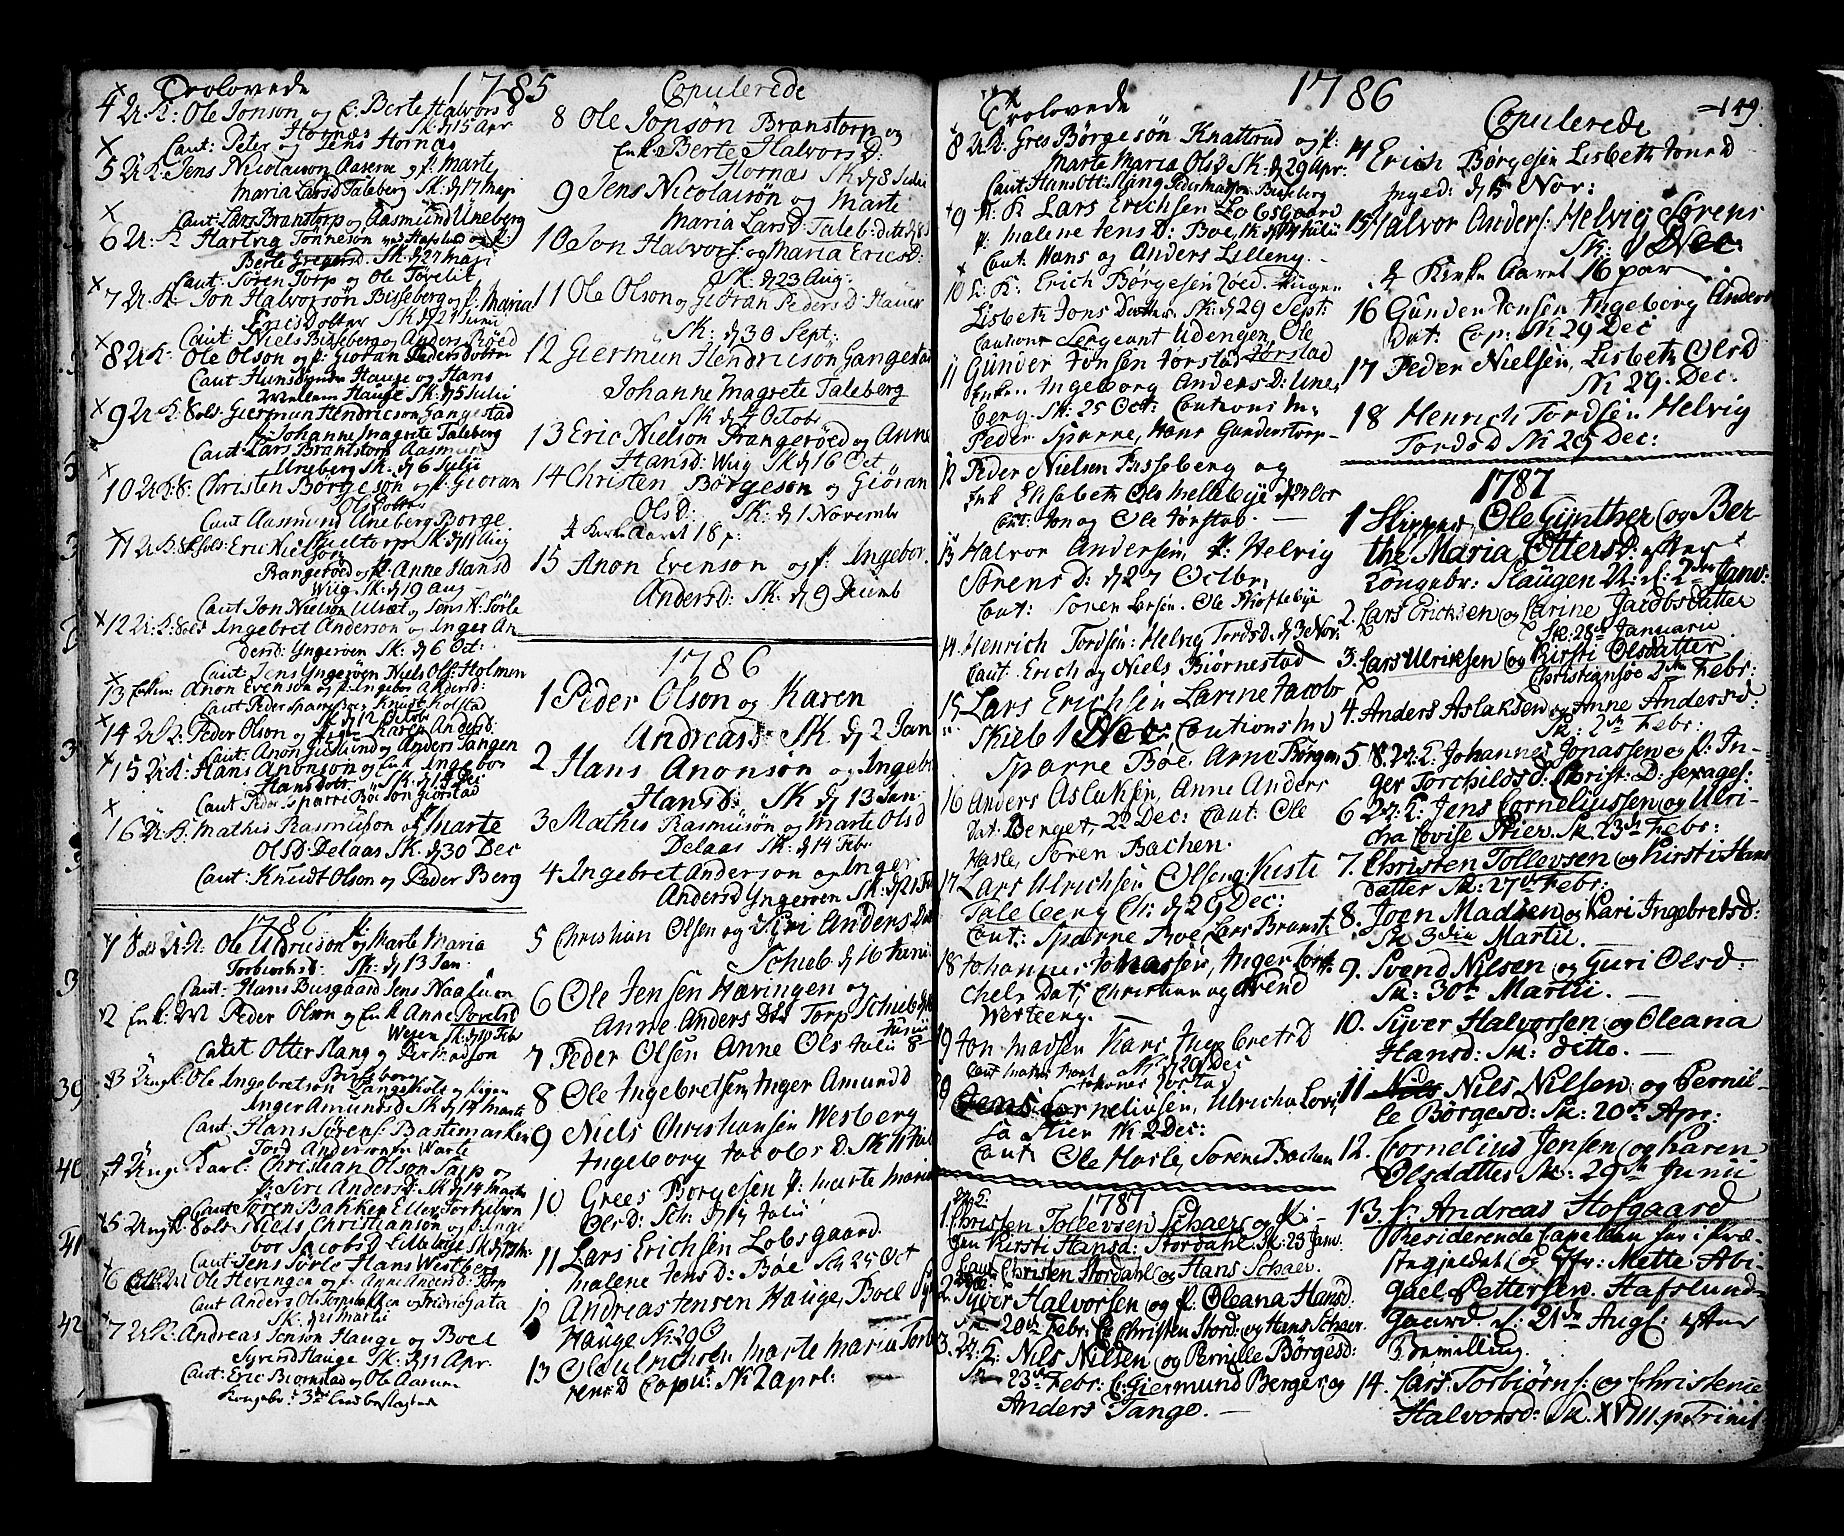 Trolovede 1785
4 U K: Ole Jonson og E: Berte Halvorsd
Hornæs Sk: d 15 Apr
Caut: Peter og Jens Hornæs
5 U K: Jens Nicolaison Aaserø og P: Marte
Maria Larsd Taleberg Sk: d 17 Maji
Caut: Lars Branstorp og Aasmund Uneberg
6 U: K Hartvig Tønneson ved Hafslund og P:
Berte Gregersd. Sk: d 27 Maji
Caut: Søren Torp og Ole Tøvelit
7 U: K: Jon Halvorsøn Bisseberg og P: Maria
Ericsdotter Sk d 21 Junii
Caut: Niels Bisseberg og Anders Røed
8 U K: Ole Olson og P: Gioran Pedersdotter
Caut Hunsdynen Hauge og Hans
Willum Hauge Sk: d 5 Julii
9 U: K: Sols Giermun Hendricson Gangestad
P: Johanne Magrete Taleberg
Caut: Lars Branstorp Aasmun
Uneberg Sk. d 6 Julii
10 U: K: 8: Christen Børgeson og P: Gioran
Olsdotter
Caut Aasmund Uneberg Borge
11 U: K: Sols: Eric Nielson Skieltorp Sk: d 11 Aug
Prangerøed og P. Anne Hansd
Wiig Sk: d 19 Aug
Caut Jon Nielson Ulset og Jens H. Sørle
12 U: K: Sols Ingebret Anderson og Inger An
dersd: Yngerøen Sk: d 6 Oct:
Caut: Jens Yngerøen Niels Ols: Holmen
13 Anon Evenson og P: Ingebor Andersd:
Caut Peder Sparre og Knut Holsta
Sk d 12 Octob
14 U K: Peder Olson og Karen Andersd:
Caut: Anon Gislund og Anders Tangen
15 U: K: Hans Anonson og Enk Ingebor
Hansdotr Sk: d 14 Dec
Caut Peder Sparre Bøe Jon Giørstad
16 U: K: Mathis Rasmuson og Marte
Olsd: Delaas Sk: d 30 Dec
Caut: Knudt Olson og Peder Berg
1786
1 Sols U: K: Ole Uldricson P: Marte Maria
Torbiornsd: Sk: d 13 Jan:
Caut: Hans Busgaard Jens Naaluen
2 Enk: M Peder Olson og Enk Anne
Wesen Sk: d 10 Feb
Cautet Otter Slang og Per Madson
Bisleberg
3 Ungk: Ole Ingebretsøn Langeholt og Pigen
Inger Amundsd Sk: d 14 Marti
Caut: Hans Sørens: Bastemarken
Tord Anderson Warte
4 Ung Karl: Christian Olson Sarp og
P: Siri Andersd: Sk: d 14 Martii
Caut: Søren Bakken Eller Torkelsen
5 Ungk Sols Niels Christianson og P: Inge
bor Jacobsd Lillebye Sk: d
Caut: Jens Sørle Hans Westberg
6 Ole Hevingen og P: Anne Andersd: Torp
Caut Anders Ols: Torpebakken og Fridrichsata
Sk: d 21 Martii
7 U: K: Andreas Jenson Hauge og Boel
Syrend Hauge Sk: d 11 Apr.
Caut: Eric Biornstad og Ole Aarum
Kongebr: 3die Led beslægted
Copulerede
8 Ole Jonsøn Branstorp og
Enk: Berte Halvorsd:
Hornæs Sk d 8 Julii
9 Jens Nicolaisøn og Marte
Maria Larsd Taleb: ditto d 8
10 Jon Halvors: og Maria Ericsd:
Sk: d 23 Aug:
11 Ole Olson og Gioran Pedersd: Hauer
Sk: d 30 Sept:
12 Giermun Hendricson Gangestad
Johanne Magrete Taleberg
Sk d 4 Octobr
13 Eric Nielson Prangerøed og Anne
Hansd: Wiig Sk d 16 Oct
14 Christen Børgeson og Giøran
Olsd: Sk: d 1 Novembr
I Kirke Aaret 18 p:
15 Anon Evenson og P: Ingebor.
Andersd: Sk: d 9 Decemb
1786
1 Peder Olson og Karen
Andreasd: Sk. d 2 Jan
2 Hans Anonsøn og Ingebr
Hansd: Sk d 13 Jan.
3 Mathis Rasmusøn og Marte Olsd
Delaas Sk: d 14 Febr
4 Ingebret Anderson og Inger
Andersd Yngerøen Sk: d 21 Fe
5 Christian Olsen og Siri Anders Dat
Schieb d 16 Junii
6 Ole Jensen Hævingen og
Anne Anders Dtr Torp Schieb d
Junii
7 Peder Olsen Anne Ols Julii 8
8 Ole Ingebretsen Inger Amundd
9 Niels Christiansen Wesberg
Ingeborg Jacobs D. Sk
10 Grees Børgesen P: Marte Maria
Olsd: Sch: d 14 Julii
11 Lars Erichsen Lobsgaard
Malene Jens D: Bøe Sch 25 Oct
12 Andreas Jensen Hauge, Boel Sy
Hauge Sk 29 O
13 Ole Ulrichsen Marte Maria Torb
rensd Copu: Sk 2 April:
Trolovede 1786
8 U K: Gres Børgesøn Knattrud og P:
Marte Maria Olsd Sk: d 29 Apr:
Caut Hans Ott: Slang Peder Madsen Bisseberg
9 U: K Lars Erichsen Lobsgaard
P: Malene Jens D: Boe, Sk: d 14 Julii
Caut: Hans og Anders Lilleng.
10 U: K. Erich Børgesen Røed. Pugen
Lisbeth Jons Datter Sk: d 29 Sept:
Cautions Sergeant Udengen, Ole
Jorstad
11 Gunder Jonsen Jorstad
Enken Ingeborg Anders D: Une,
berg. Sk: 25 Oct: Cautions M:
Peder Sparre, Hans Gunderstorp
12 Peder Nielsen Bisseberg og
Enk Elisabeth Ols Mellebye d Oct
Cot: Jon og Ole Jorstad.
13 Halvor Andersen, P: Helvig
Sørens D: d 27 Octbr,
Caut: Soren Larsen. Ole Skoftebye
14 Henrich Tordsen: Helvig Tordsd. d 3 Nov.
Caut Erich og Niels Biørnestad
15 Lars Erichsen Larine Jacobs
Skieb 1 Dec: Cautions Md
Sparre Bøe Arne Torgen
16 Anders Aslaksen, Anne Anders
Dat: Benget, 22 Dec: Caut: Ole
Hasle, Soren Bachen.
17 Lars Ulrichsen Olseng Kirsti
Taleberg Ch: d 29 Dec:
Caut: Sparre Boe Lars Branst.
18 Johannes Johnassen, Inger Torr
chels Dat, Christian og Svend
Werteeng.
19 Jon Madsen Kari Ingebretsd
Sk d 29 Dec
20 Jens Corneliusen, Ulricha Lovi
sa Stier Sk 2 Dec:
Caut Ole Hasle, Sorene Bachen
1787
1 Christen Tollevsen Schaer og Pi-
gen Kirsti Hansd: Stordahl Sk. 23 Janv
Caut Christen Stordahl og Hans Schaer.
2 Syver Halvorsen og P. Oleana Hansd.
Sk 20de Febr: C Christen Stord: og Hans Schaer.
3. U: K: Nils Nilsen og Pernille Børgesd:
Sk 23de Febr: C: Giermund Berger og
Anders Tange.
Copulerede 149.
14 Erich Børgesen Lisbeth Jonsd
Inged: d 15 Nov:
15 Halvor Anders: Helvig Sørens
Sk: 1 Dec:
I Kirke Aaret 16 par
16 Gunder Jonsen Ingeborg Anders
Dat: Cop: Sk 29 Dec
17 Peder Nielsen, Lisbeth Olsd
Sk 29. Dec:
18 Henrich Tordsen Helvig
Tordsd Sk 29 Dec:
1787
1 Skipper, Ole Günther (og Ber-
the Maria Otters D: efter
Kongebr: Slaugen U: d: 2den Janv:
2. Lars Ericksen og Larine Jacobsdatter
Sk: 28de Januarii
3. Lars Ulriksen og Kirsti Olsdatter
Christiansøe 2den Febr:
4. Anders Aslaksen og Anne Andersd
Sk: 2den Febr:
5 8. U: K: Johannes Jonassen og P: In-
ger Torchildsd: Christ: D: sexages:
6 U: K: Jens Corneliussen og Ulri-
cha Lovise Stier Sk. 23de Febr:
7. Christen Tollevsen og Kirsti Hans
datter Sk: 27de Febr:
8. Joen Madsen og Kari Ingebretsd:
Sk 3die Martii.
9. Svend Nilsen og Guri Olsd:
Sk: 30te Martii.
10. Syver Halvorsen og Oleana
Hansd: Sk: ditto.
11 Nils Nilsen og Pernil-
le Børgesd: Sk: 20de Apr:
12. Cornelius Jensen og Karen
Olsdatter Sk: 29de Junii
13 Hr Andreas Hofgaard
Residerende Capellan her i Præ-
stegieldet og Jfr: Mette Abi-
gael Pettersen. Hafslund-
Gaard d: 21de Aug: efter
Bevilling.
14. Lars Torbiørns: og Christenie
Halvorsd: Sk. XVIII. p. Trinit